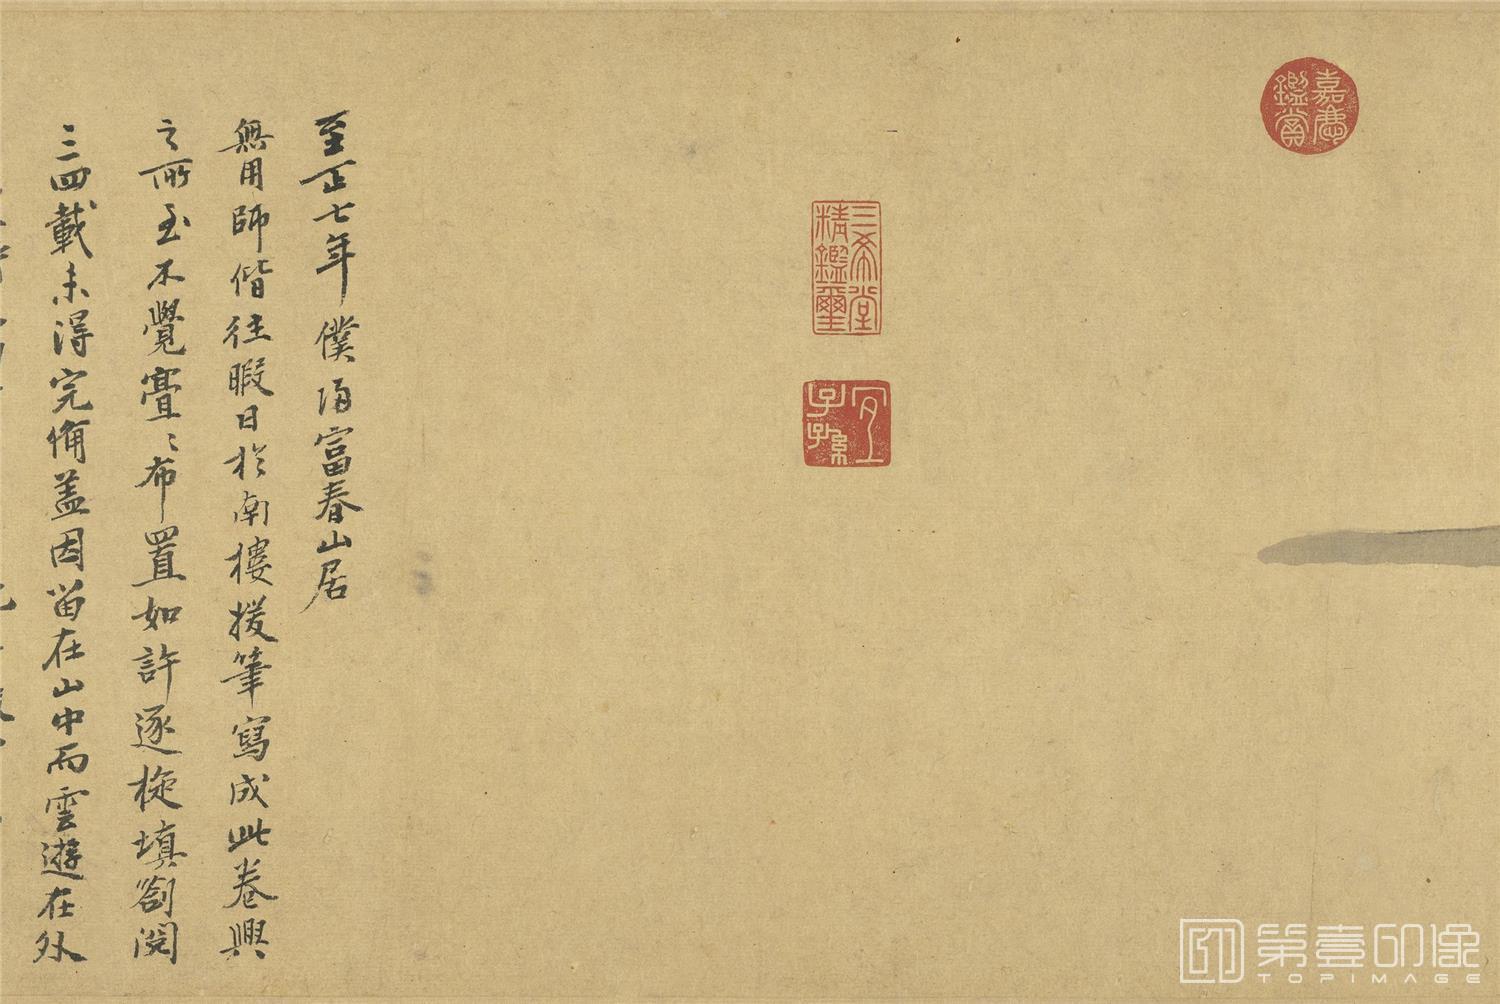 嘉慶
鑑賞
三希堂
精鑑璽
宜
子孫
至正七年僕歸富春山居
無用師偕往暇日於南樓援筆寫成此卷興
之所至不覺亹〻布置如許逐旋填劄閱
三四載未得完備盖因留在山中而雲遊在外
第壹印像
TOPIMAGE